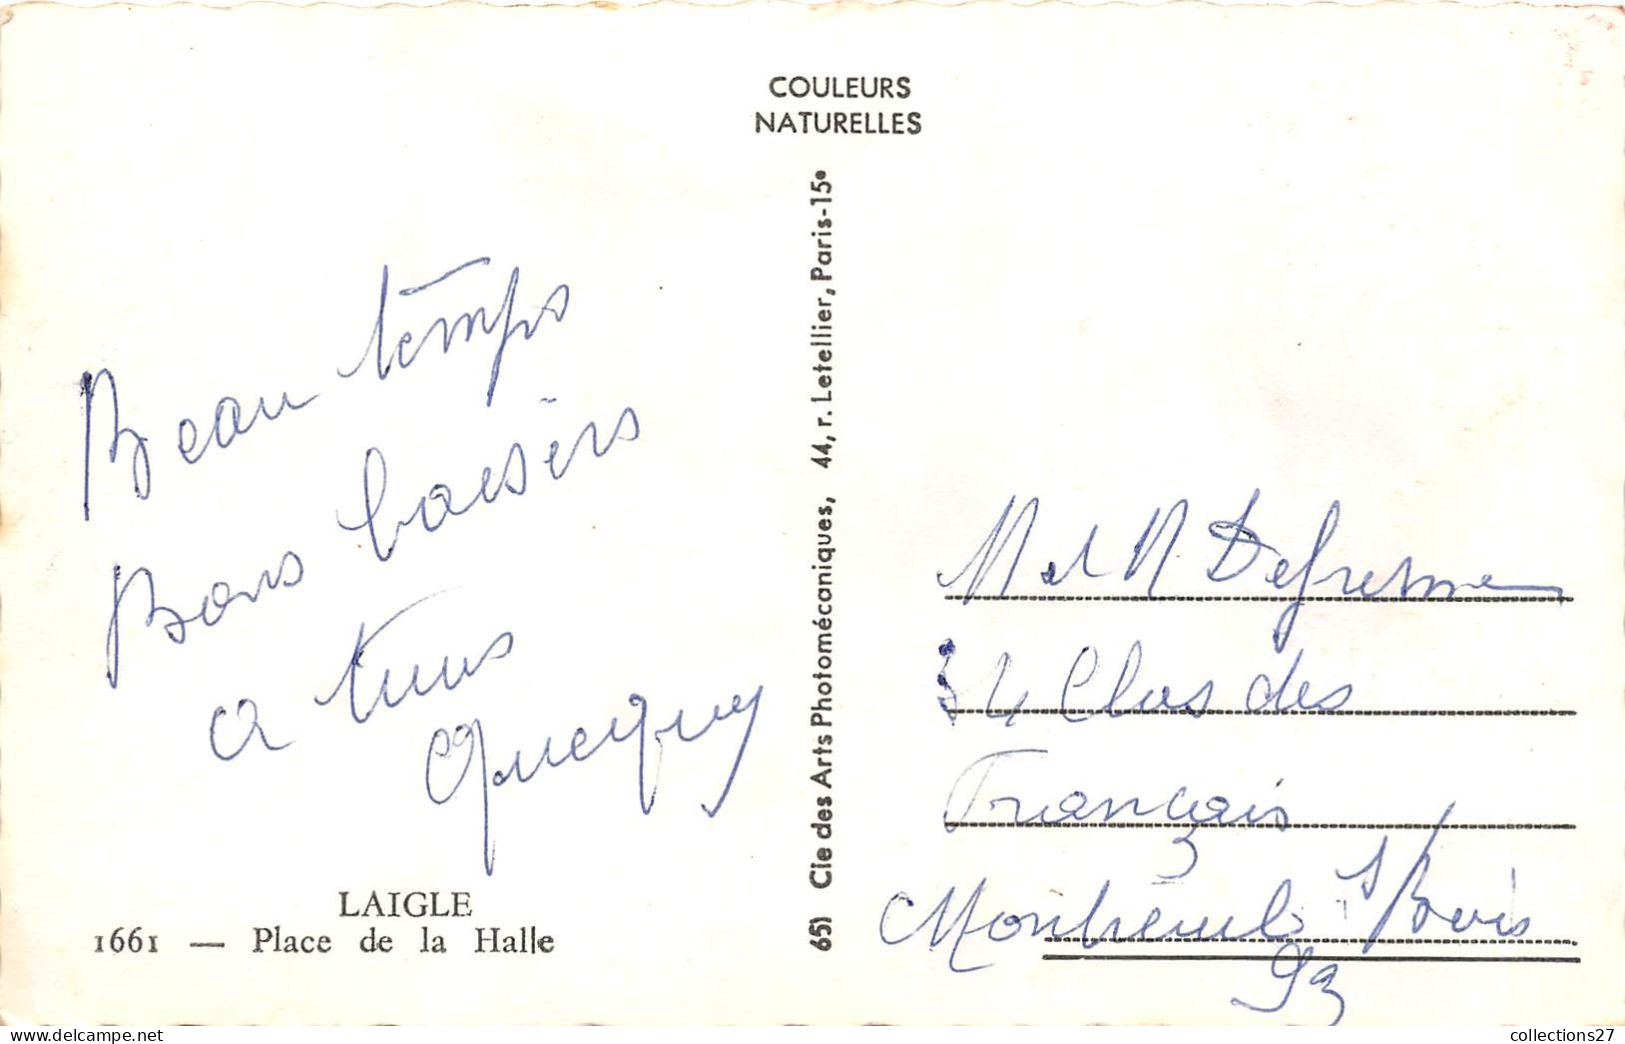 COULEURS
NATURELLES
Beau temps
Bons baisers
a tous
LAIGLE
1661 — Place de la Halle
65) Cie des Arts Photomécaniques, 44, r. Letellier, Paris-15e
M et M Defresne
34 Clos des
Français
Montreuil s/Bois
93
collections27